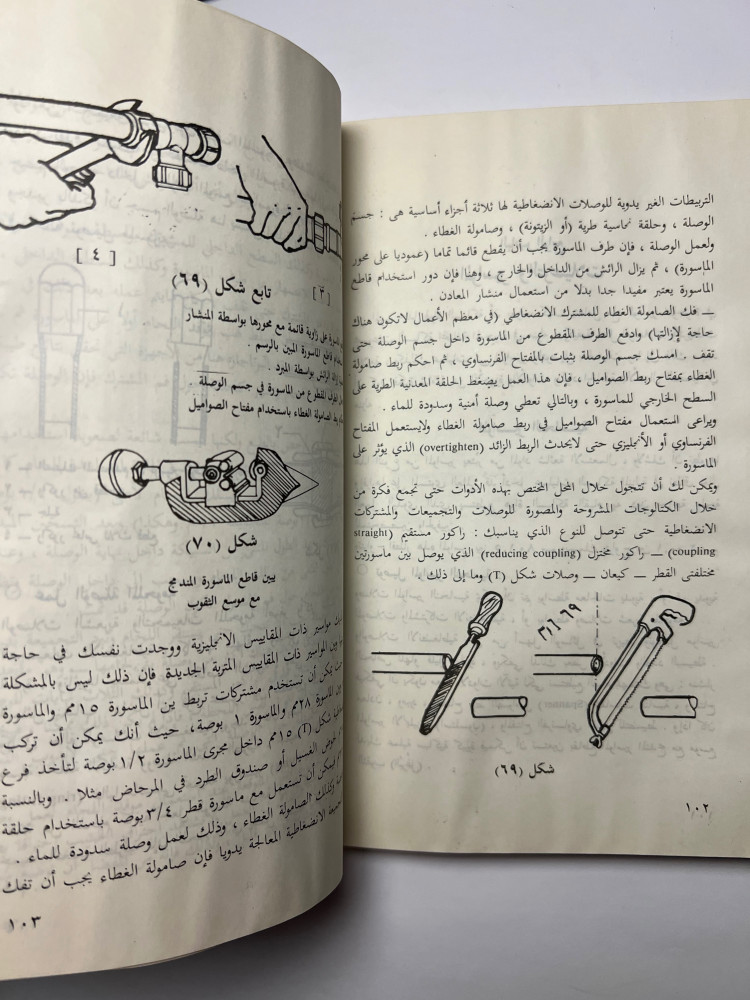 التربيطات الغير يدوية للوصلات الانضغاطية لها ثلاثة أجزاء أساسية هى : جسم
الوصلة ، وحلقة نحاسية طرية (أو الزيتونة) ، وصامولة الغطاء .
ولعمل الوصلة ، فإن طرف الماسورة يجب أن يقطع قائما تماما (عموديا على محور
الماسورة) ، ثم يزال الرائش من الداخل والخارج ، وهنا فإن دور استخدام قاطع
الماسورة يعتبر مفيدا جدا بدلا من استعمال منشار المعادن .
— فك الصامولة الغطاء للمشترك الانضغاطي (في معظم الأعمال لاتكون هناك
حاجة لإزالتها) وادفع الطرف المقطوع من الماسورة داخل جسم الوصلة حتى
تقف . امسك جسم الوصلة بثبات بالمفتاح الفرنساوي ، ثم احكم ربط صامولة
الغطاء بمفتاح ربط الصواميل ، فإن هذا العمل يضغط الحلقة المعدنية الطرية على
السطح الخارجي للماسورة ، وبالتالي تعطي وصلة أمنية وسدودة للماء .
ويراعى استعمال مفتاح الصواميل في ربط صامولة الغطاء ولايستعمل المفتاح
الفرنساوي أو الأنجليزي حتى لايحدث الربط الزائد (overtighten) الذي يؤثر على
الماسورة .
ويمكن لك أن تتجول خلال المحل المختص بهذه الأدوات حتى تجمع فكرة من
خلال الكتالوجات المشروحة والمصورة للوصلات والتجميعات والمشتركات
الانضغاطية حتى تتوصل للنوع الذي يناسبك : راكور مستقيم (straight
coupling) — راكور مختزل (reducing coupling) الذي يوصل بين ماسورتين
مختلفتى القطر — كيعان — وصلات شكل (T) وما إلى ذلك .
شكل (٦٩)
١٠٢
[٤]
[٣]
تابع شكل (٦٩)
على زاوية قائمة مع محورها بواسطة المنشار
قاطع الماسورة المبين بالرسم .
الرائش بواسطة المبرد .
المقطوع من الماسورة في جسم الوصلة .
ربط الصامولة الغطاء باستخدام مفتاح الصواميل
شكل (٧٠)
يبين قاطع الماسورة المندمج
مع موسع الثقوب
مواسير ذات المقاييس الانجليزية ووجدت نفسك في حاجة
بين المواسير ذات المقاييس المترية الجديدة فإن ذلك ليس بالمشكلة
يمكن أن تستخدم مشتركات تربط بن الماسورة ١٥مم والماسورة
الماسورة ٢٨مم والماسورة ١ بوصة، حيث أنك يمكن أن تركب
شكل (T) ١٥مم داخل مجرى الماسورة ١/٢ بوصة لتأخذ فرع
حوض الغسيل أو صندوق الطرد في المرحاض مثلا . وبالنسبة
فيمكن أن تستعمل مع ماسورة قطر ٣/٤ بوصة باستخدام حلقة
وكذلك الصامولة الغطاء ، وذلك لعمل وصلة سدودة للماء .
الانضغاطية المعالجة يدويا فإن صامولة الغطاء يجب أن تفك
١٠٣